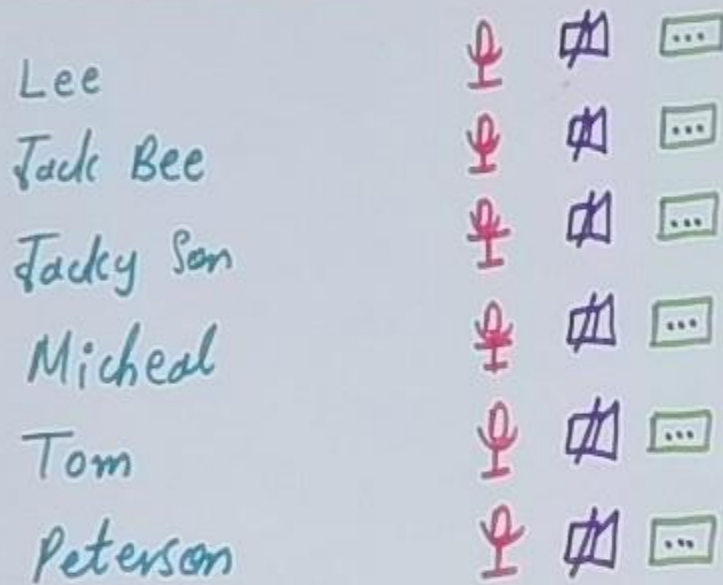 Lee
Jack Bee
Jacky Son
Micheal
Tom
Peterson